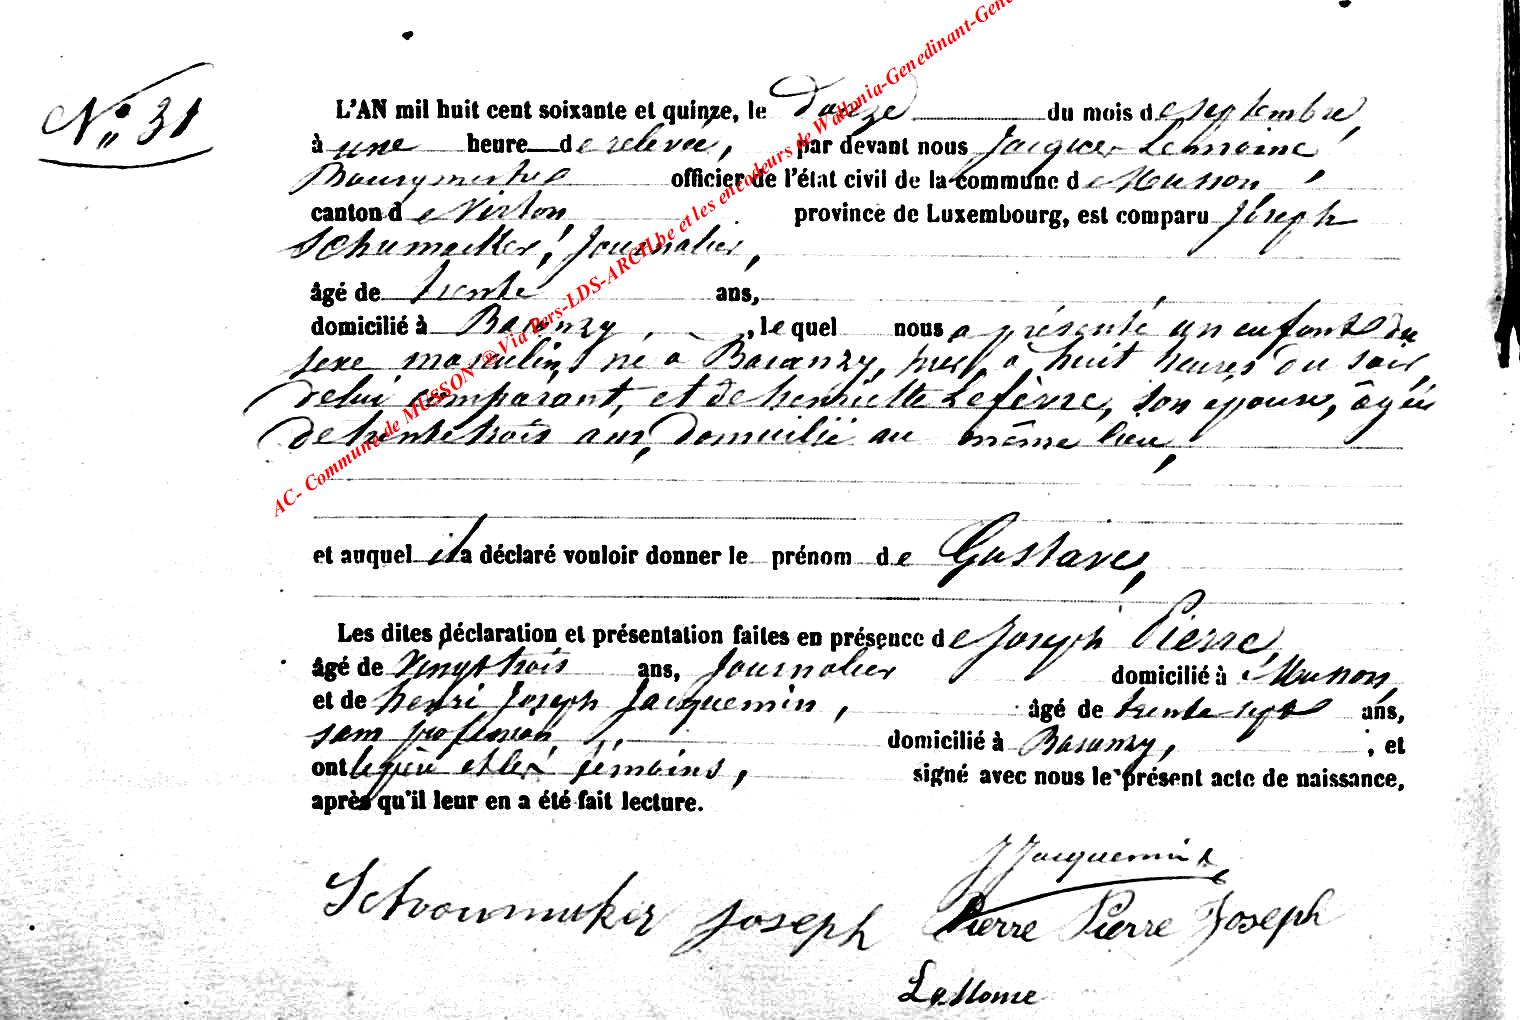 N° 31
L'AN mil huit cent soixante et quinze, le douze du mois de septembre,
à une heure de relevée, par devant nous Jacques Lemoine,
Bourgmestre officier de l'état civil de la commune de Musson,
canton de Virton province de Luxembourg, est comparu Joseph
Schumacker, Journalier,
âgé de trente ans,
domicilié à Baranzy, lequel nous a présenté un enfant du
sexe masculin, né à Baranzy, hier, à huit heures du soir,
de lui comparant, et de henriette Lefèvre, son épouse, âgée
de trente trois ans, domicilié au même lieu,
et auquel il a déclaré vouloir donner le prénom de Gustave,
Les dites déclaration et présentation faites en présence de Joseph Pierre,
âgé de vingt trois ans, Journalier domicilié à Musson,
et de henri Joseph Jacquemin, âgé de trente sept ans,
sans profession, domicilié à Baranzy, ; et
ont le père et les témoins, signé avec nous le présent acte de naissance,
après qu'il leur en a été fait lecture.
J Jacquemin
Schoumuker Joseph Pierre Pierre Joseph
AC- Commune de MUSSON @ Via Pers-LDS-ARCH.be et les encodeurs de Wallonia-Genedinant-Gen